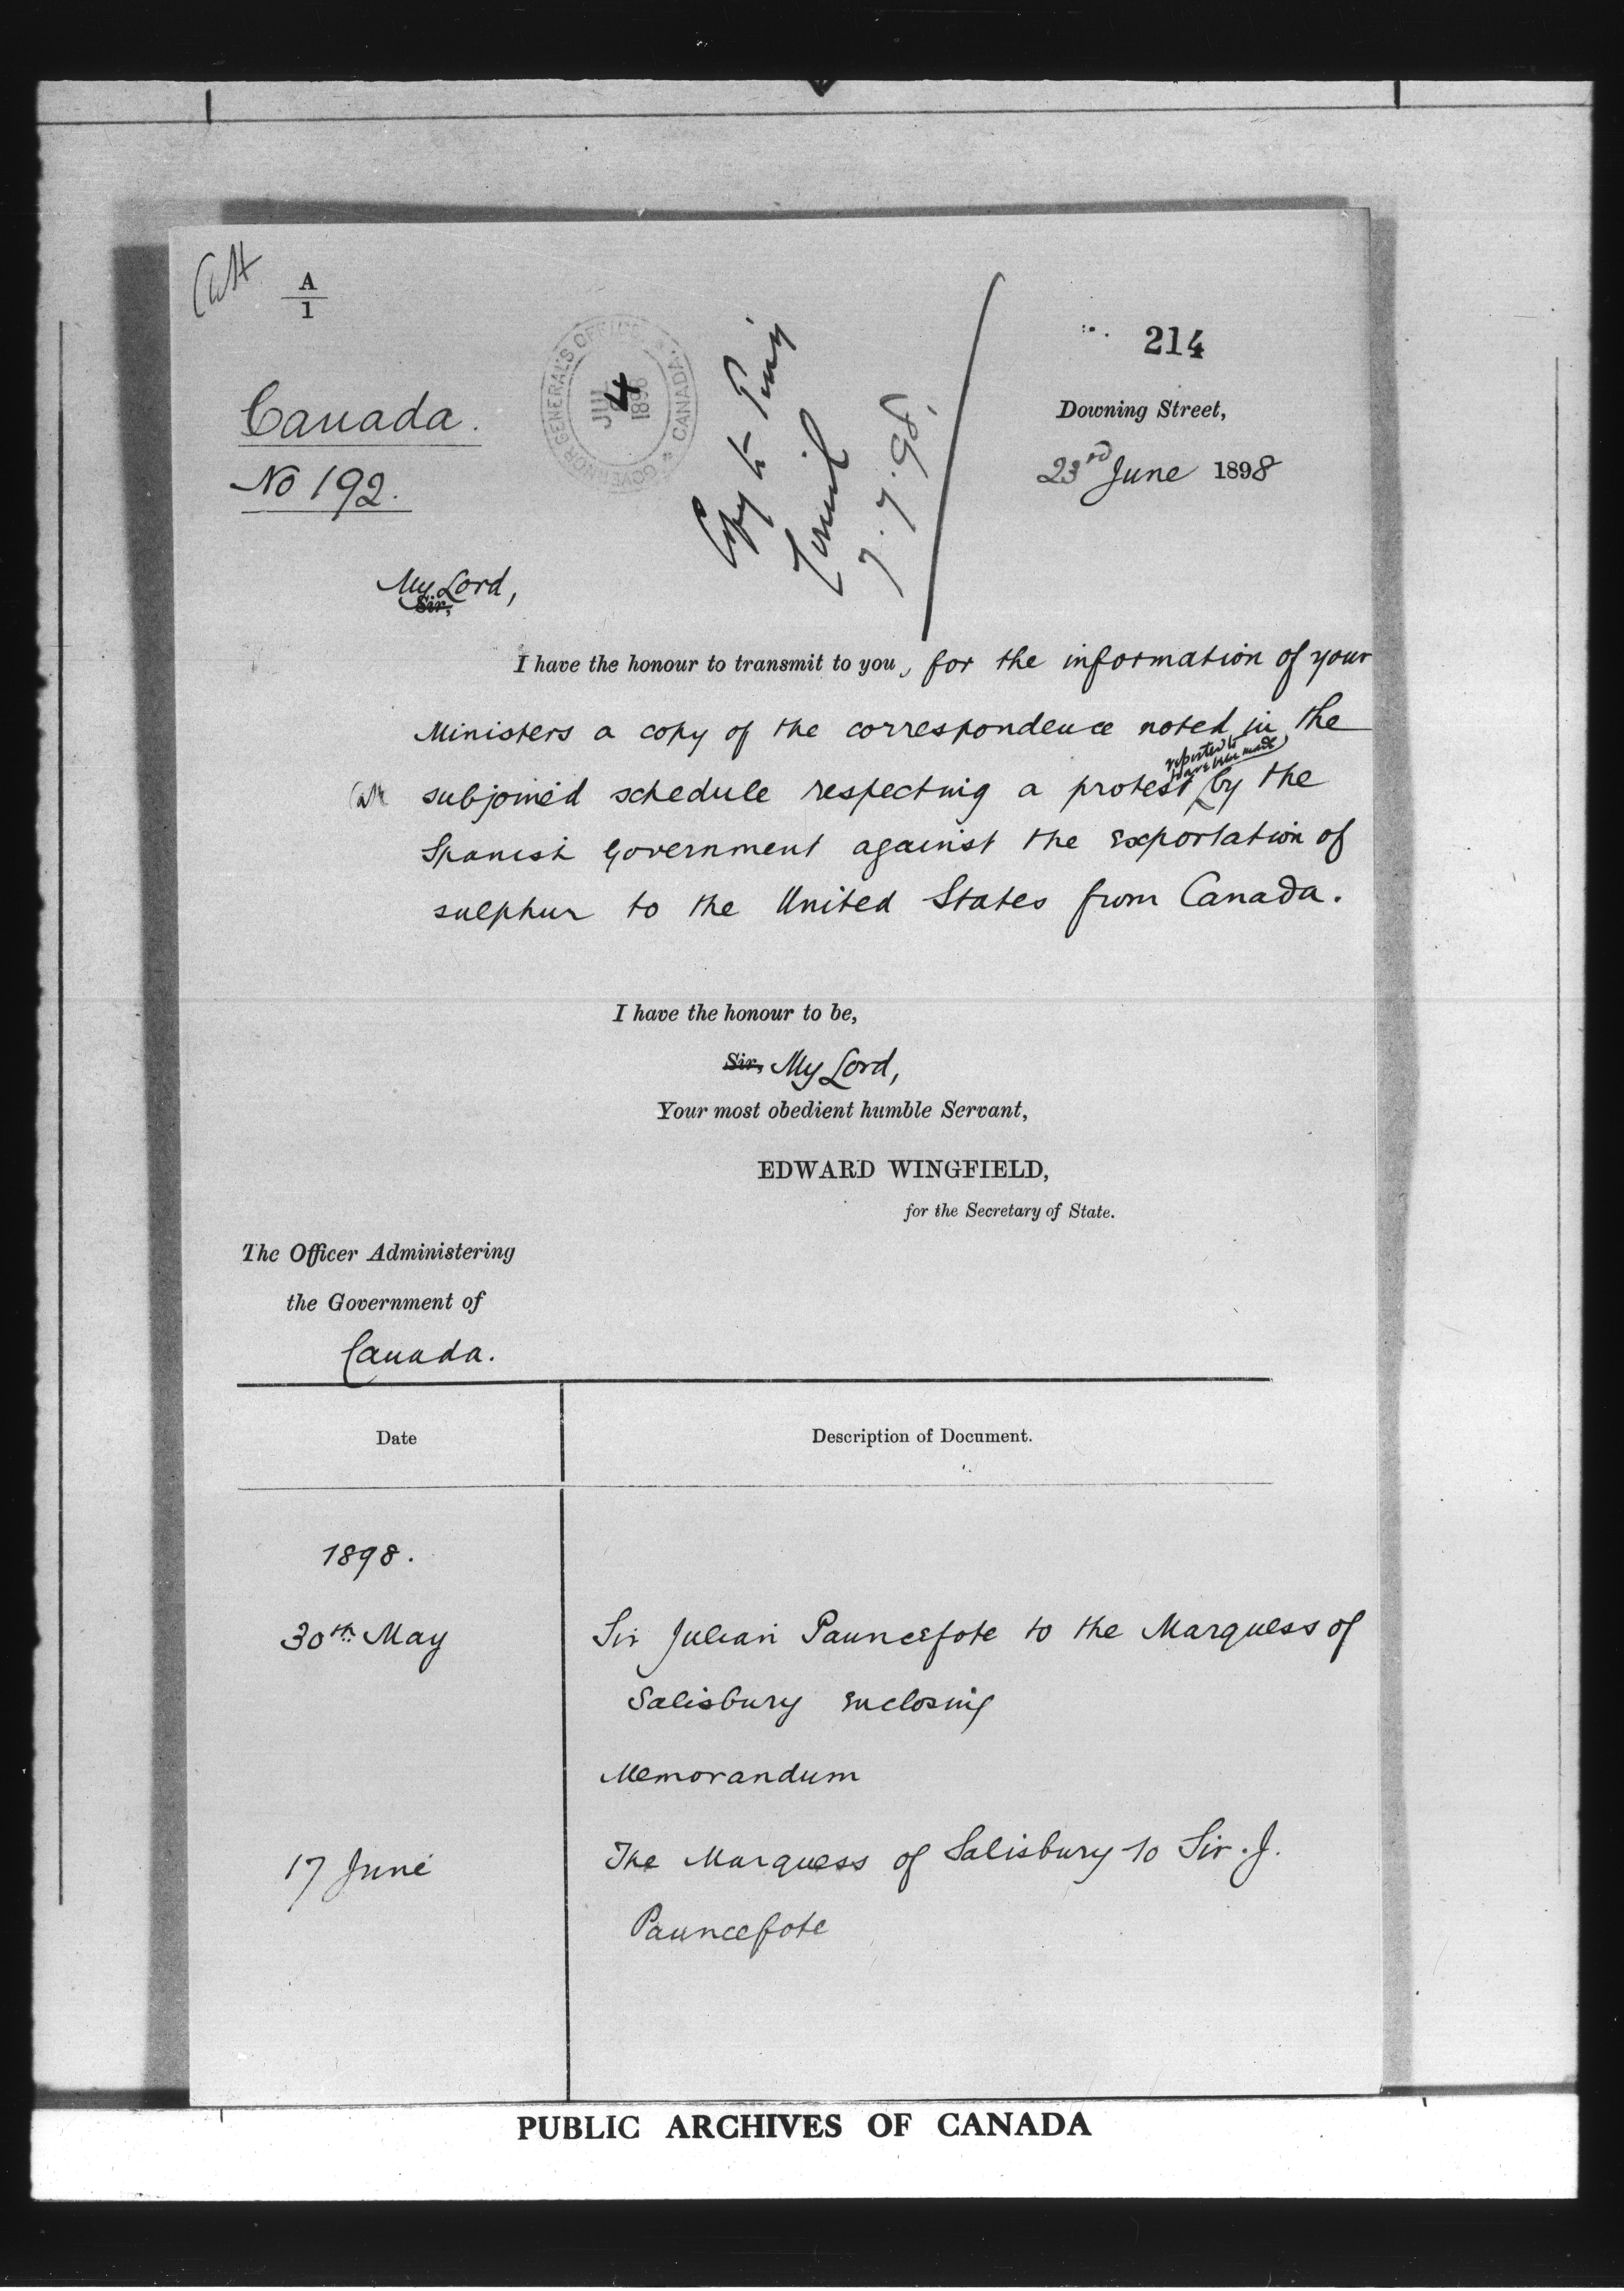 A
1
214
GOVERNOR GENERAL'S OFFICE
CANADA
JUL
4
1898
Copy to Privy
Council
7.7.98.
Downing Street,
23rd June 1898
Canada.
No 192.
My Lord,
Sir,
I have the honour to transmit to you, for the information of your
Ministers a copy of the correspondence noted in the
reported to
have been made
subjoined schedule respecting a protest by the
Spanish Government against the exportation of
sulphur to the United States from Canada.
I have the honour to be,
Sir, My Lord,
Your most obedient humble Servant,
EDWARD WINGFIELD,
for the Secretary of State.
The Officer Administering
the Government of
Canada.
Date
Description of Document.
1898.
30th May
Sir Julian Pauncefote to the Marquess of
Salisbury enclosing
Memorandum
17 June
The Marquess of Salisbury to Sir. J.
Pauncefote
PUBLIC ARCHIVES OF CANADA